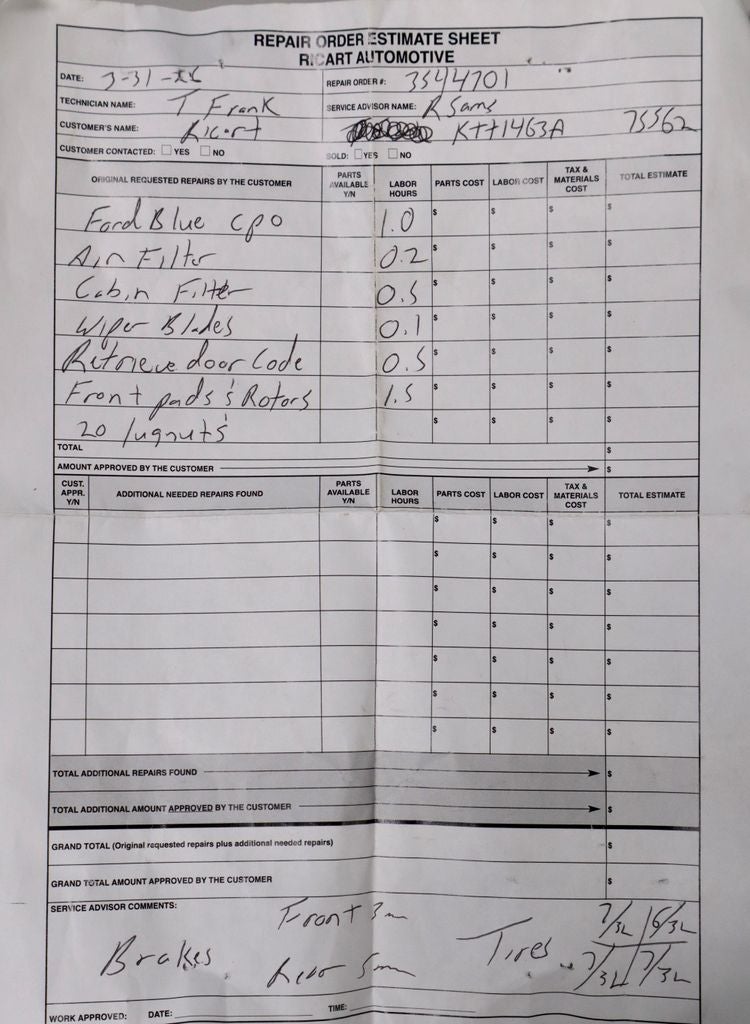 REPAIR ORDER ESTIMATE SHEET
RICART AUTOMOTIVE
DATE: 3-31-26 REPAIR ORDER #: 3544701
TECHNICIAN NAME: T Frank SERVICE ADVISOR NAME: R Sams
CUSTOMER'S NAME: Ricart KTT1463A 75562
CUSTOMER CONTACTED: YES NO SOLD: YES NO
ORIGINAL REQUESTED REPAIRS BY THE CUSTOMER PARTS AVAILABLE Y/N LABOR HOURS PARTS COST LABOR COST TAX & MATERIALS COST TOTAL ESTIMATE
Ford Blue CPO 1.0 $ $ $ $
Air Filter 0.2 $ $ $ $
Cabin Filter 0.5 $ $ $ $
Wiper Blades 0.1 $ $ $ $
Retrieve door Code 0.5 $ $ $ $
Front pads & Rotors 1.5 $ $ $ $
20 lugnuts $ $ $ $
TOTAL $
AMOUNT APPROVED BY THE CUSTOMER $
CUST. APPR. Y/N ADDITIONAL NEEDED REPAIRS FOUND PARTS AVAILABLE Y/N LABOR HOURS PARTS COST LABOR COST TAX & MATERIALS COST TOTAL ESTIMATE
$ $ $ $
$ $ $ $
$ $ $ $
$ $ $ $
$ $ $ $
$ $ $ $
$ $ $ $
TOTAL ADDITIONAL REPAIRS FOUND $
TOTAL ADDITIONAL AMOUNT APPROVED BY THE CUSTOMER $
GRAND TOTAL (Original requested repairs plus additional needed repairs) $
GRAND TOTAL AMOUNT APPROVED BY THE CUSTOMER $
SERVICE ADVISOR COMMENTS:
Front 3mm 7/32 6/32
Brakes Tires
Rear 5mm 7/32 7/32
WORK APPROVED: DATE: TIME: